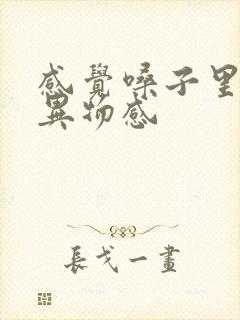 感覺嗓子里
異物感
長戈一畫